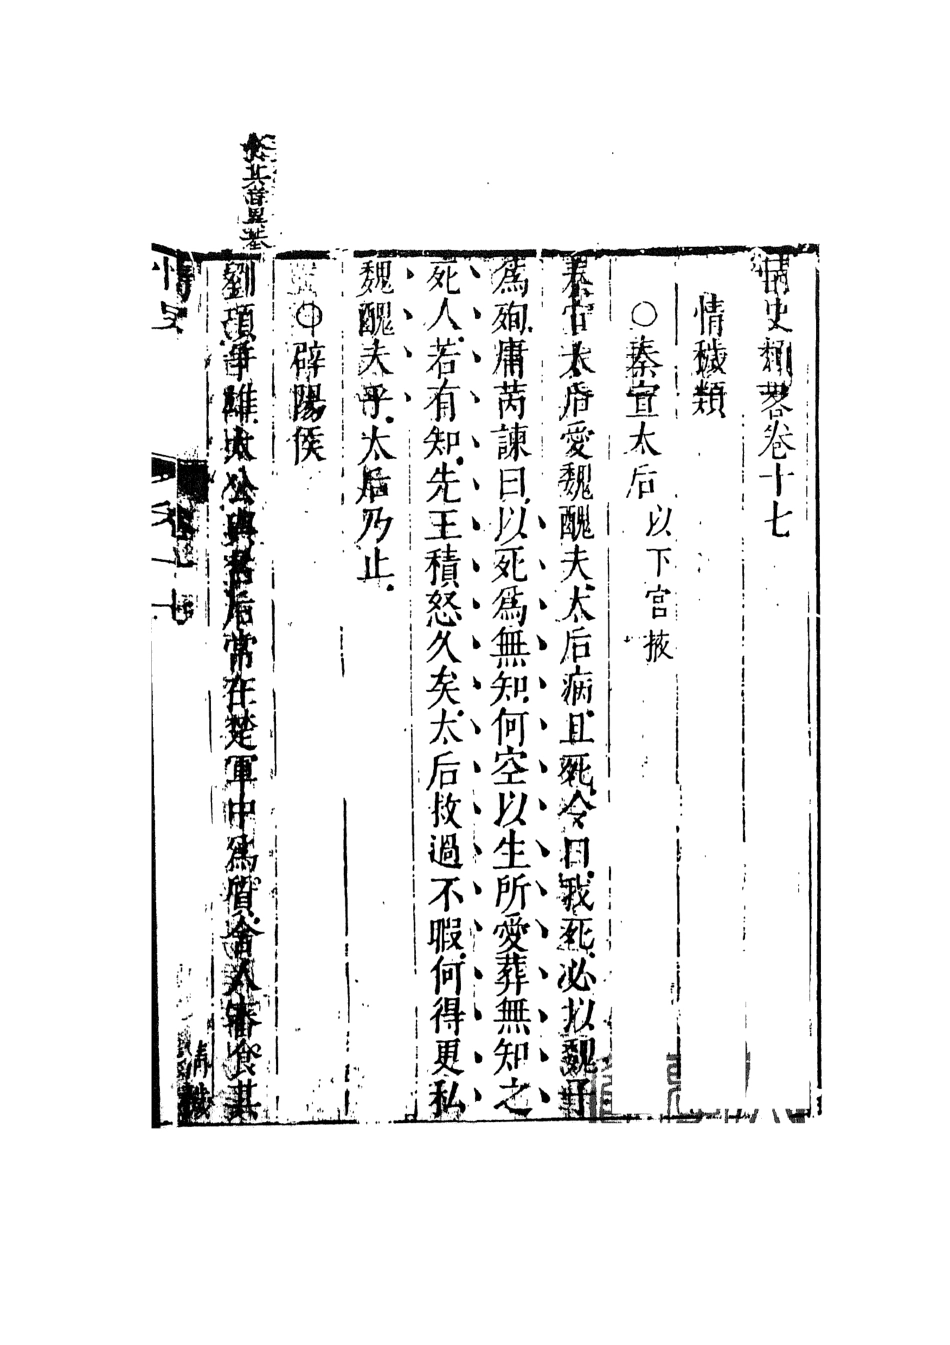 情史類畧卷十七
情穢類
○秦宣太后 以下宮掖
秦宣太后愛魏醜夫太后病且死令曰我死必以魏子
爲殉庸芮諫曰以死爲無知何空以生所愛葬無知之
死人若有知先王積怒久矣太后救過不暇何得更私
魏醜夫乎太后乃止
○辟陽侯
食其音異基
劉項爭雄太公與呂后常在楚軍中爲質舍人審食其
情史 卷十七 情穢